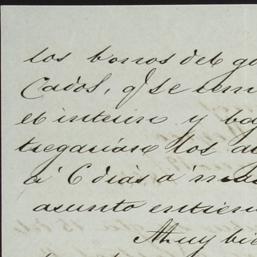 los bonos del go
cados, q.e se rem
el interin y ba
tregarian los
a 6 dias a mas
asunto entien
Muy bi